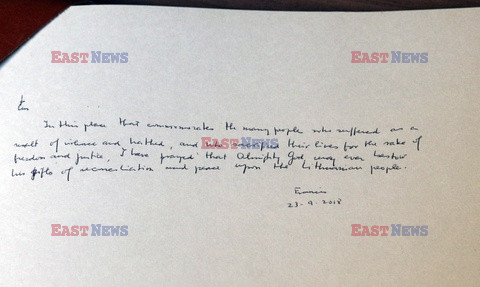 EASTNEWS EASTNEWS
In this place that commemorates the many people who suffered as a
result of violence and hatred, and who sacrificed their lives for the sake of
EASTNEWS
freedom and justice, I have prayed that Almighty God may ever bestow
his gifts of reconciliation and peace upon the Lithuanian people.
23-9-2018
EASTNEWS EASTNEWS